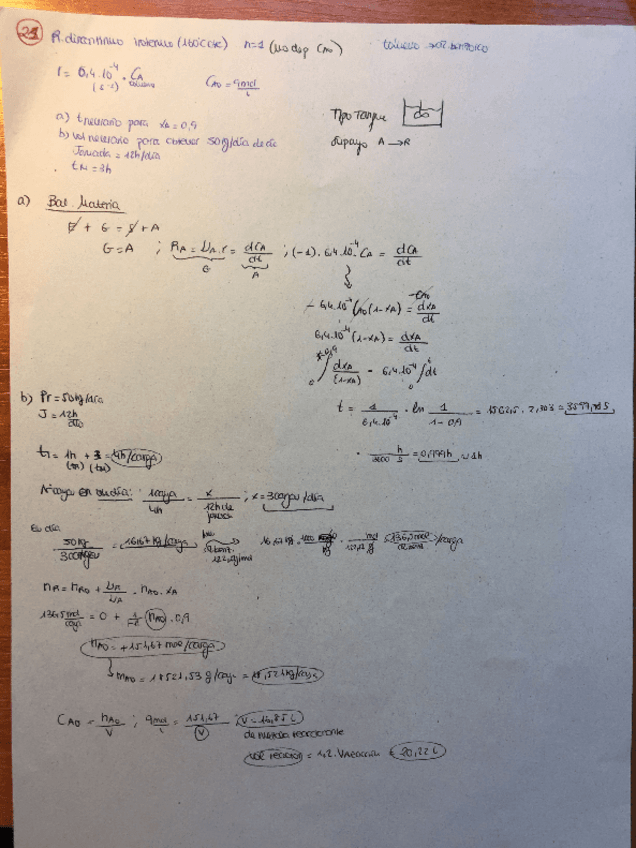 21 R. discontinuo isotermo (160ºC cte) n=1 (no dep CA0)
r = 6,4·10⁻⁴ · CA
(s⁻¹)
CA0 = 9 mol/L
a) t necesario para xA = 0,9
b) vol necesario para obtener 50 kg/día de
Jornada = 12h/día
tM = 3h
Tipo tanque
A → R
a) Bal. Materia
E + G = S + A
G = A ; RA = νA·r = dCA/dt ; (-1)·6,4·10⁻⁴·CA = dCA/dt
G A
-6,4·10⁻⁴ CA0 (1-xA) = -CA0 dxA/dt
6,4·10⁻⁴ (1-xA) = dxA/dt
∫ dxA/(1-xA) = 6,4·10⁻⁴ ∫ dt
b) Pr = 50 kg/día
J = 12h/día
t = 1/6,4·10⁻⁴ · ln 1/1-0,9 = 1562,5 · 2,303 = 3597,78 s
· h/3600 s = 0,999h ≈ 1h
tT = 1h + 3 = 4h/carga
(tr) (tM)
Nº carga en un día: 1 carga/4h = x/12h de jornada ; x = 3 cargas/día
En día
50 kg/3 cargas = 16,67 kg/carga
nR = nR0 + νR/νA · nA0 · xA
136,5 mol/carga = 0 + nA0 · 0,9
nA0 = +151,67 mol/carga
mA0 = 18521,53 g/carga = 18,521 kg/carga
CA0 = nA0/V ; 9 mol/L = 151,67/V ; V = 16,85 L
de mezcla reaccionante
vol reactor = 1,2 · V reacción = 20,22 L